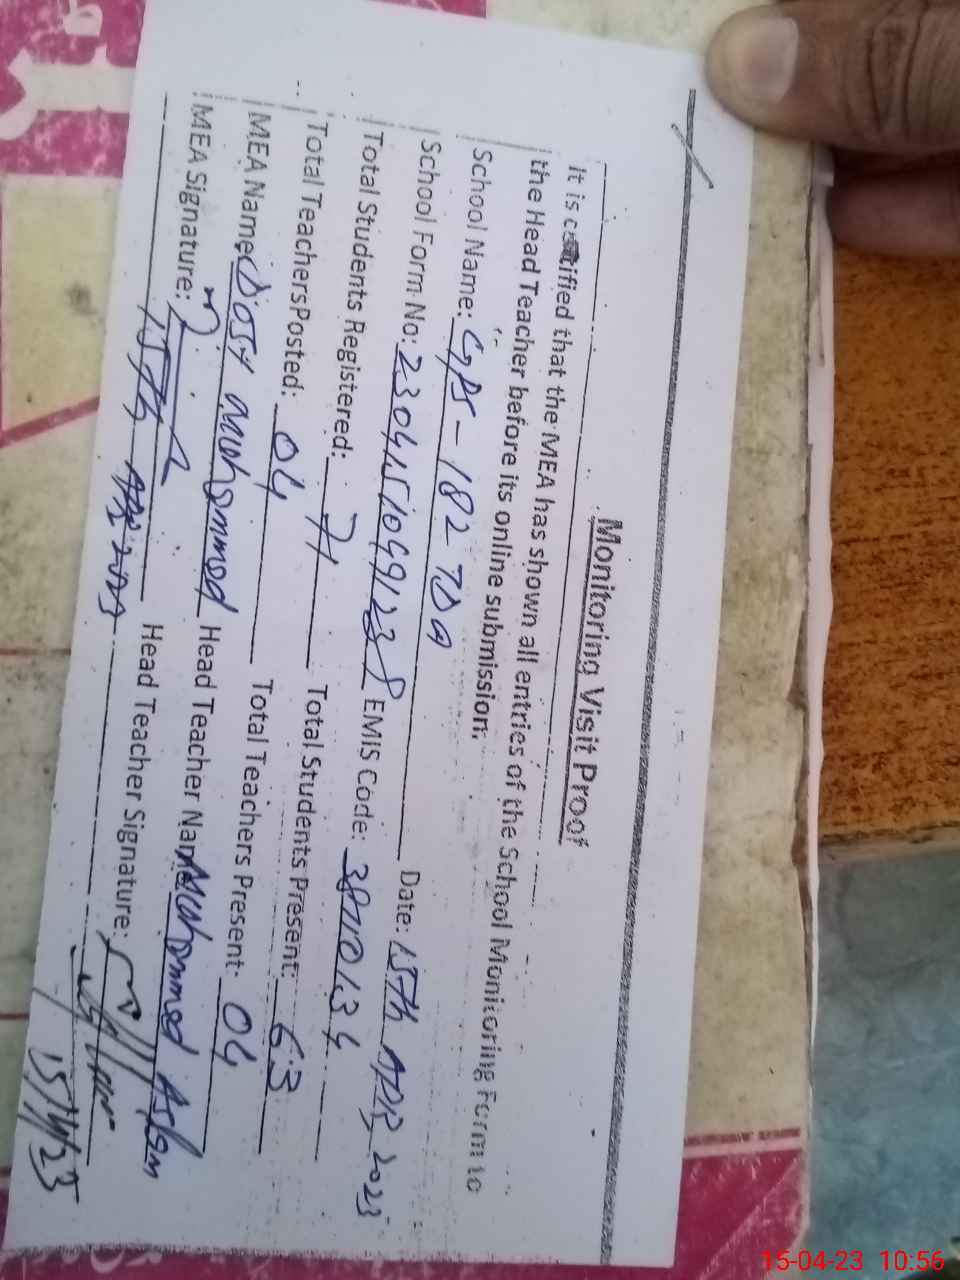 Monitoring Visit Proof
It is certified that the MEA has shown all entries of the School Monitoring Form to
the Head Teacher before its online submission.
School Name: GPS - 182 TDA Date: 15th APR, 2023
School Form No: 23041510991238 EMIS Code: 38710134
Total Students Registered: 71 Total Students Present: 63
Total TeachersPosted: 04 Total Teachers Present: 04
MEA Name: Dost Muhammed Head Teacher Name Muhammed Aslam
MEA Signature: Head Teacher Signature:
15th APR 2023 15/4/23
15-04-23 10:56